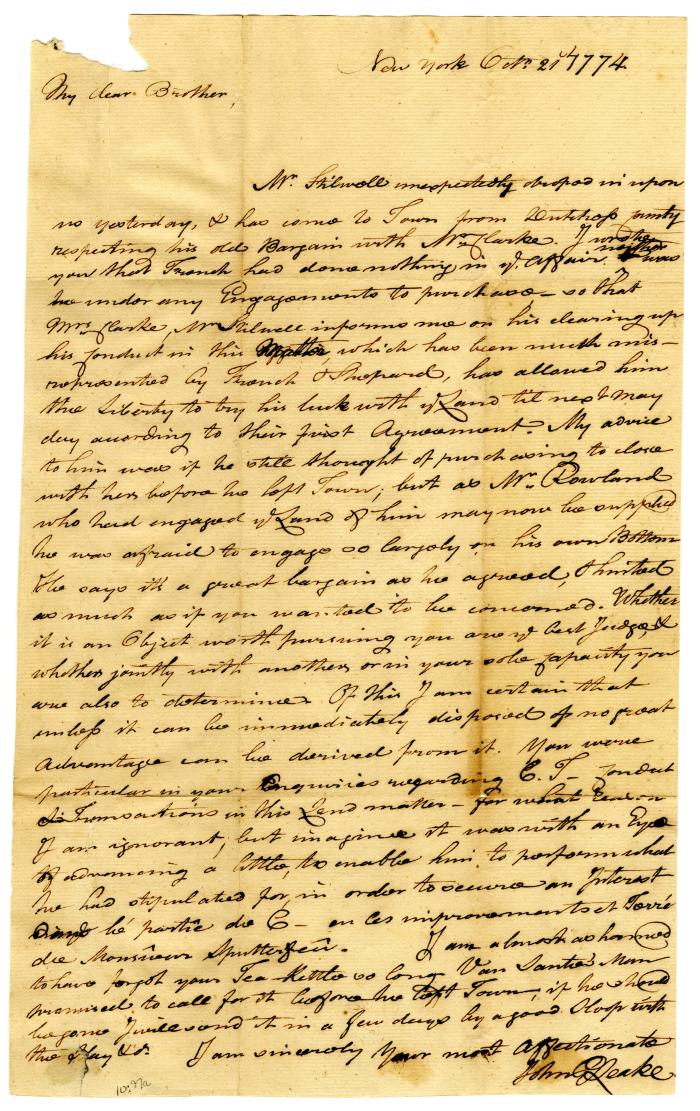 New York Octr. 21st 1774
My dear Brother,
Mr. Stilwell unexpectedly droped in upon
us yesterday, & has come to Town from Dutchess County
respecting his old Bargain with Mrs. Clarke. I wrote
you that French had done nothing in ye. Affair. neither was
he under any Engagements to purchase – so that
Mrs. Clarke, Mr. Stilwell informs me on his clearing up
his Conduct in this Matter, which has been much mis-
represented by French & Shepard, has allowed him
the Liberty to try his luck with ye Land til next May
day according to their first Agreement. My advice
to him was if he still thought of purchasing to close
with her before he left Town; but as Mr. Rowland
who had engaged ye Land of him may now be supplied
he was afraid to engage so largely on his own Bottom
He says its a great bargain as he agreed, & hinted
as much as if you wanted to be concerned. Whether
it is an Object worth pursuing you are ye best Judge, &
whether jointly with another or in your sole Capacity you
are also to determine. Of this I am certain that
unless it can be immediately disposed of no great
Advantage can be derived from it. You were
particular in your Enquiries regarding E. T– Conduct
& Transactions in this Land matter – for what Reason
I am ignorant, but imagine it was with an Eye
of advancing a little, to enable him to perform what
he had stipulated for, in order to secure an Interest
la partie de C– en ces improvements et Terré
de Monsieur Sputterfeu. I am almost ashamed
to have forgot your Tea Kettle so long Van Santé's Man
promised to call for it before he left Town, if he should
be gone I will send it in a few days by a good Sloop with
the Hay &c. I am sincerely Your most Affectionate
John G Leake